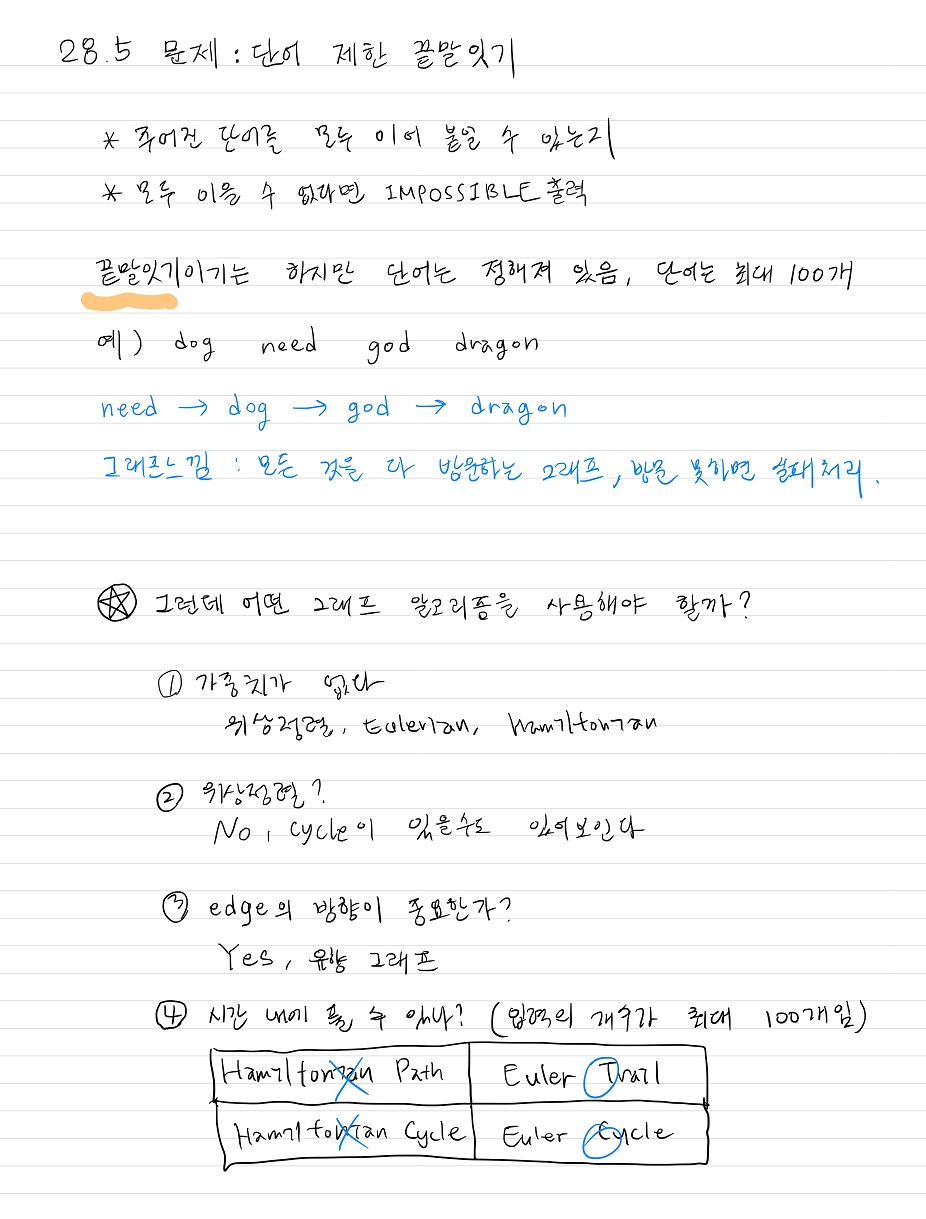 28.5 문제 : 단어 제한 끝말잇기
* 주어진 단어를 모두 이어 붙일 수 있는지
* 모두 이을 수 없다면 IMPOSSIBLE 출력
끝말잇기이기는 하지만 단어는 정해져 있음, 단어는 최대 100개
예) dog need god dragon
need → dog → god → dragon
그래프느낌 : 모든 것을 다 방문하는 그래프, 방문 못하면 실패처리.
☆ 그런데 어떤 그래프 알고리즘을 사용해야 할까?
① 가중치가 없다
위상정렬, Eulerian, Hamiltonian
② 위상정렬?
No, cycle이 있을수도 있어보인다
③ edge의 방향이 중요한가?
Yes, 유향 그래프
④ 시간 내에 풀 수 있나? (입력의 개수가 최대 100개임)
Hamiltonian Path Euler Trail
Hamiltonian Cycle Euler Cycle